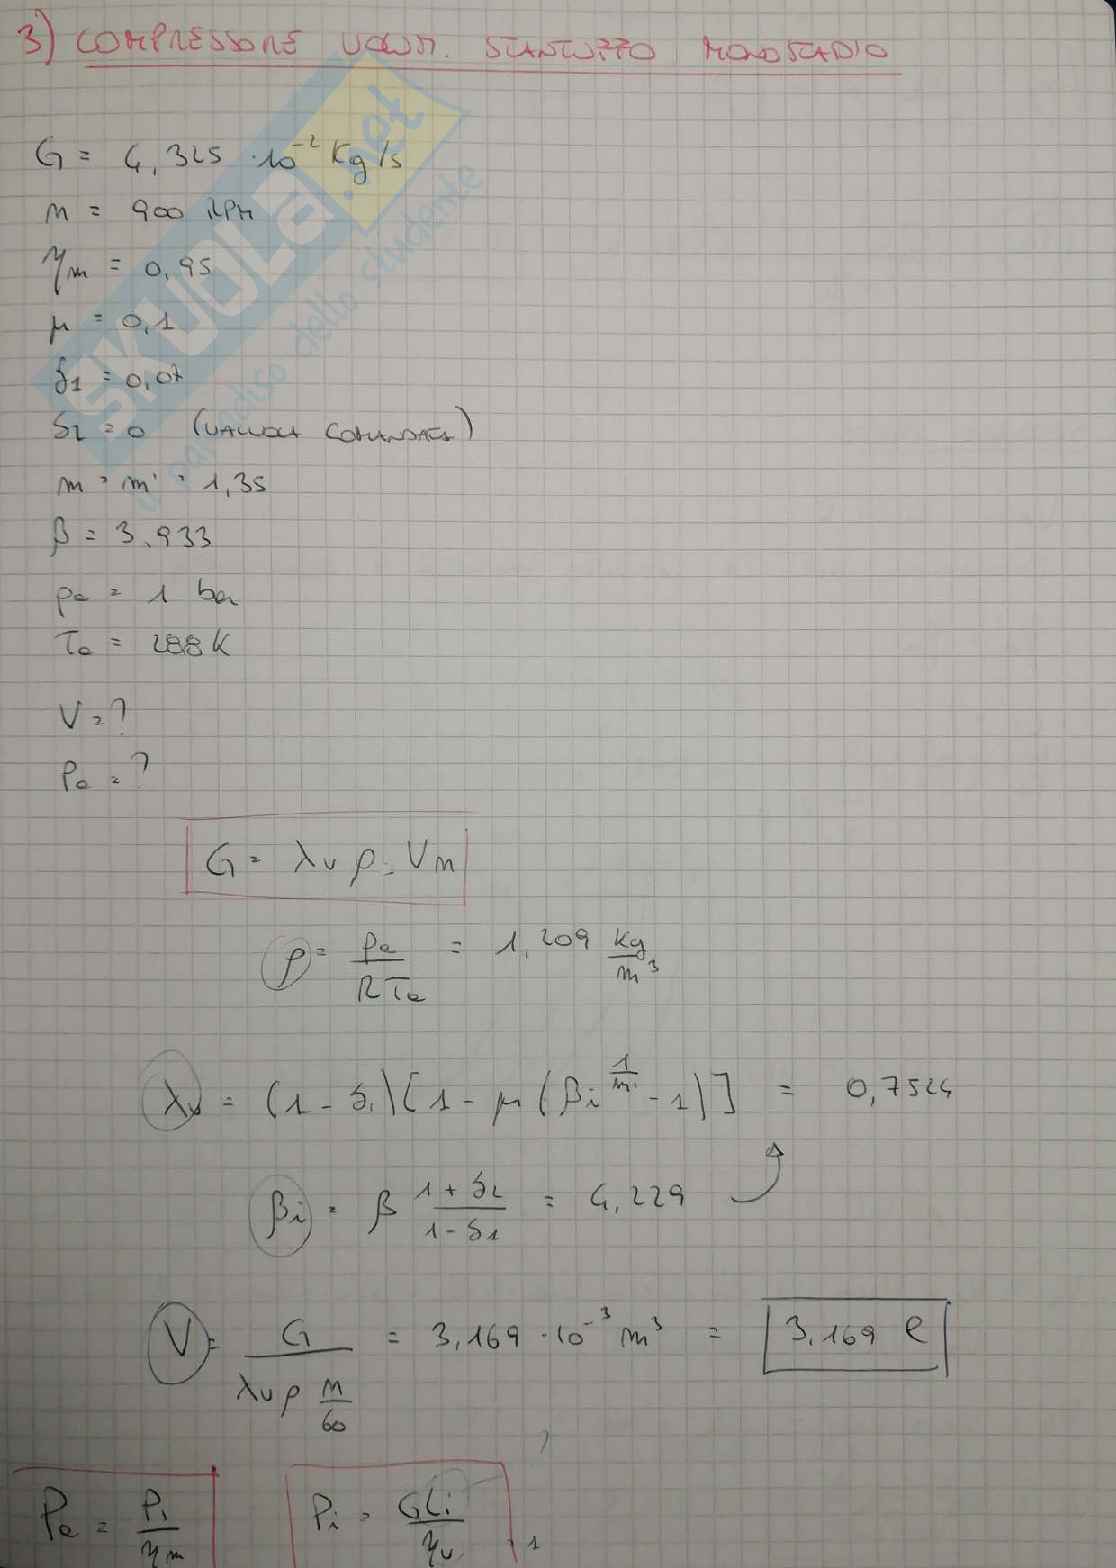 3) COMPRESSORE VOLUM. STANTUFFO MONOSTADIO
G = 4,325 · 10⁻² Kg/s
n = 900 RPM
ηm = 0,95
μ = 0,1
δ1 = 0,07
δ2 = 0 (VALVOLA COMANDATA)
m = m' = 1,35
β = 3.933
pa = 1 bar
Ta = 288 K
V = ?
Pa = ?
G = λv ρ V n
ρ = pa / R Ta = 1,209 kg/m³
λv = (1 - δ1) [1 - μ (βi^(1/m') - 1)] = 0,7524
βi = β (1 + δ2)/(1 - δ1) = 4,229
V = G / (λv ρ n/60) = 3,169 · 10⁻³ m³ = 3,169 l
Pa = Pi/ηm Pi = G Li/ηv
SKUOLA.net